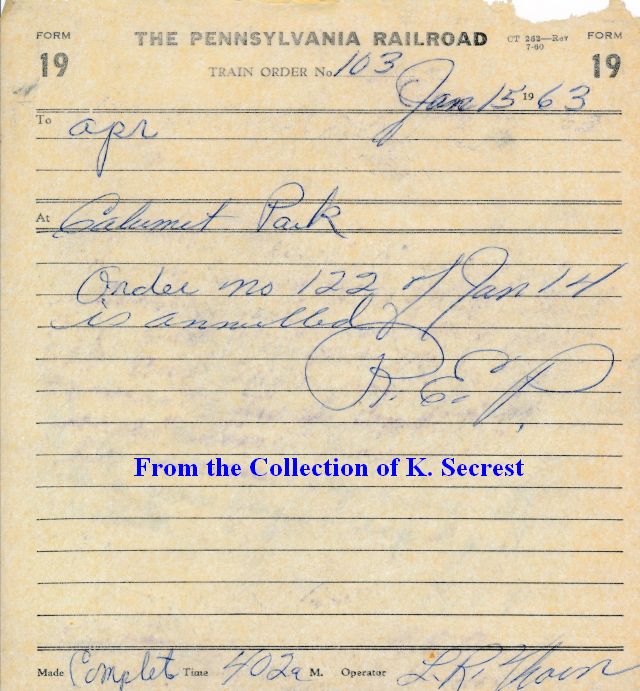 FORM THE PENNSYLVANIA RAILROAD CT 262—Rev FORM
19 7-60 19
TRAIN ORDER No. 103
Jan 15 19 63
To opr
At Calumet Park
Order no 122 of Jan 14
is annulled
R.E.P.
From the Collection of K. Secrest
Made Complet Time 402a M. Operator L.R.